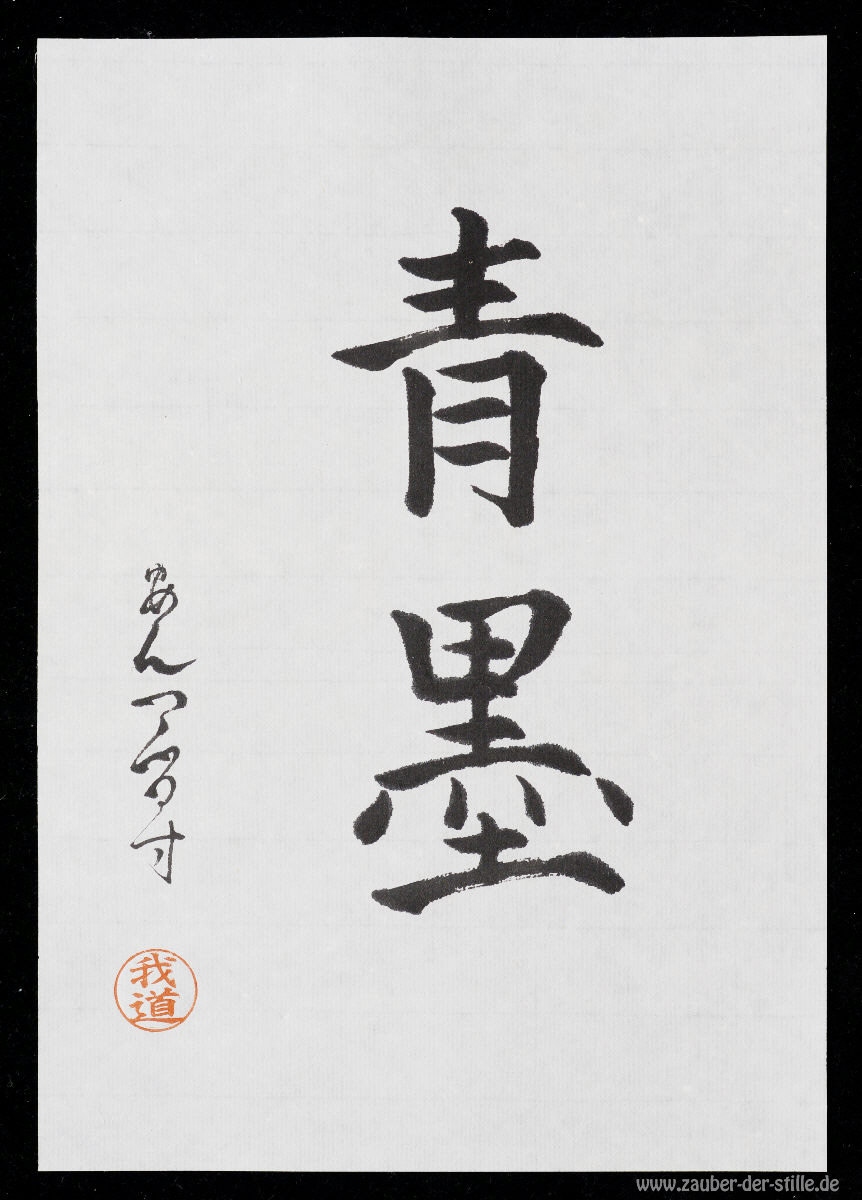 青墨
我道
www.zauber-der-stille.de